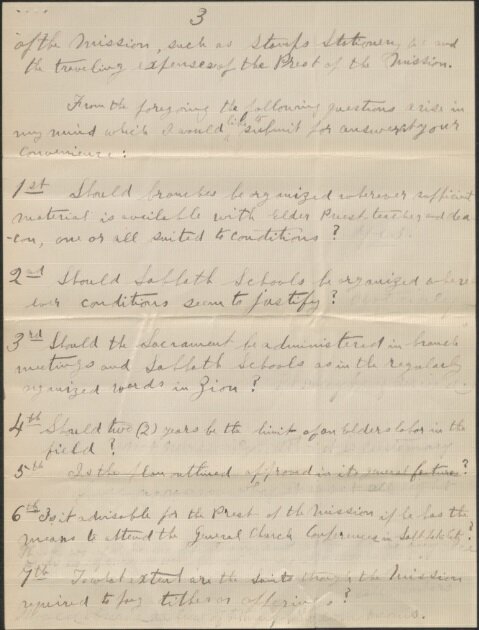 3
of the Mission, such as Stamps Stationery &c and
the traveling expenses of the Prest of the Mission.
From the foregoing the following questions arise in
my mind which I would like to submit for answers at your
convenience:
1st Should branches be organized wherever sufficient
material is available with Elder Priest, teacher and dea
-con, one or all suited to conditions?
2nd Should Sabbath Schools be organized where-
ever conditions seem to justify?
3rd Should the Sacrament be administered in branch
meetings and Sabbath Schools as in the regularly
organized wards in Zion?
4th Should two (2) years be the limit of an Elders labor in the
field?
5th Is the plan outlined approved in its general features?
6th Is it advisable for the Prest of the Mission if he has the
means to attend the General Church Conferences in Salt Lake City?
7th To what extent are the Saints through the Mission
required to pay tithes or offerings?